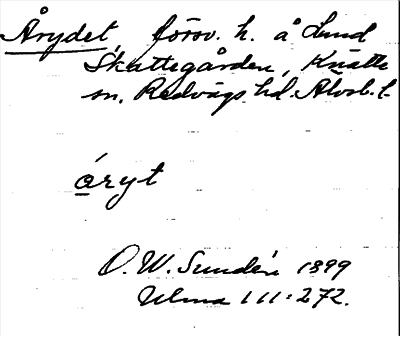 Årydet, försv. h. å Lund
Skattegården, Knätte
sn. Redvägs hd. Älvsb. l.
åryt
O. W. Sundén 1899
Ulma 111:272.